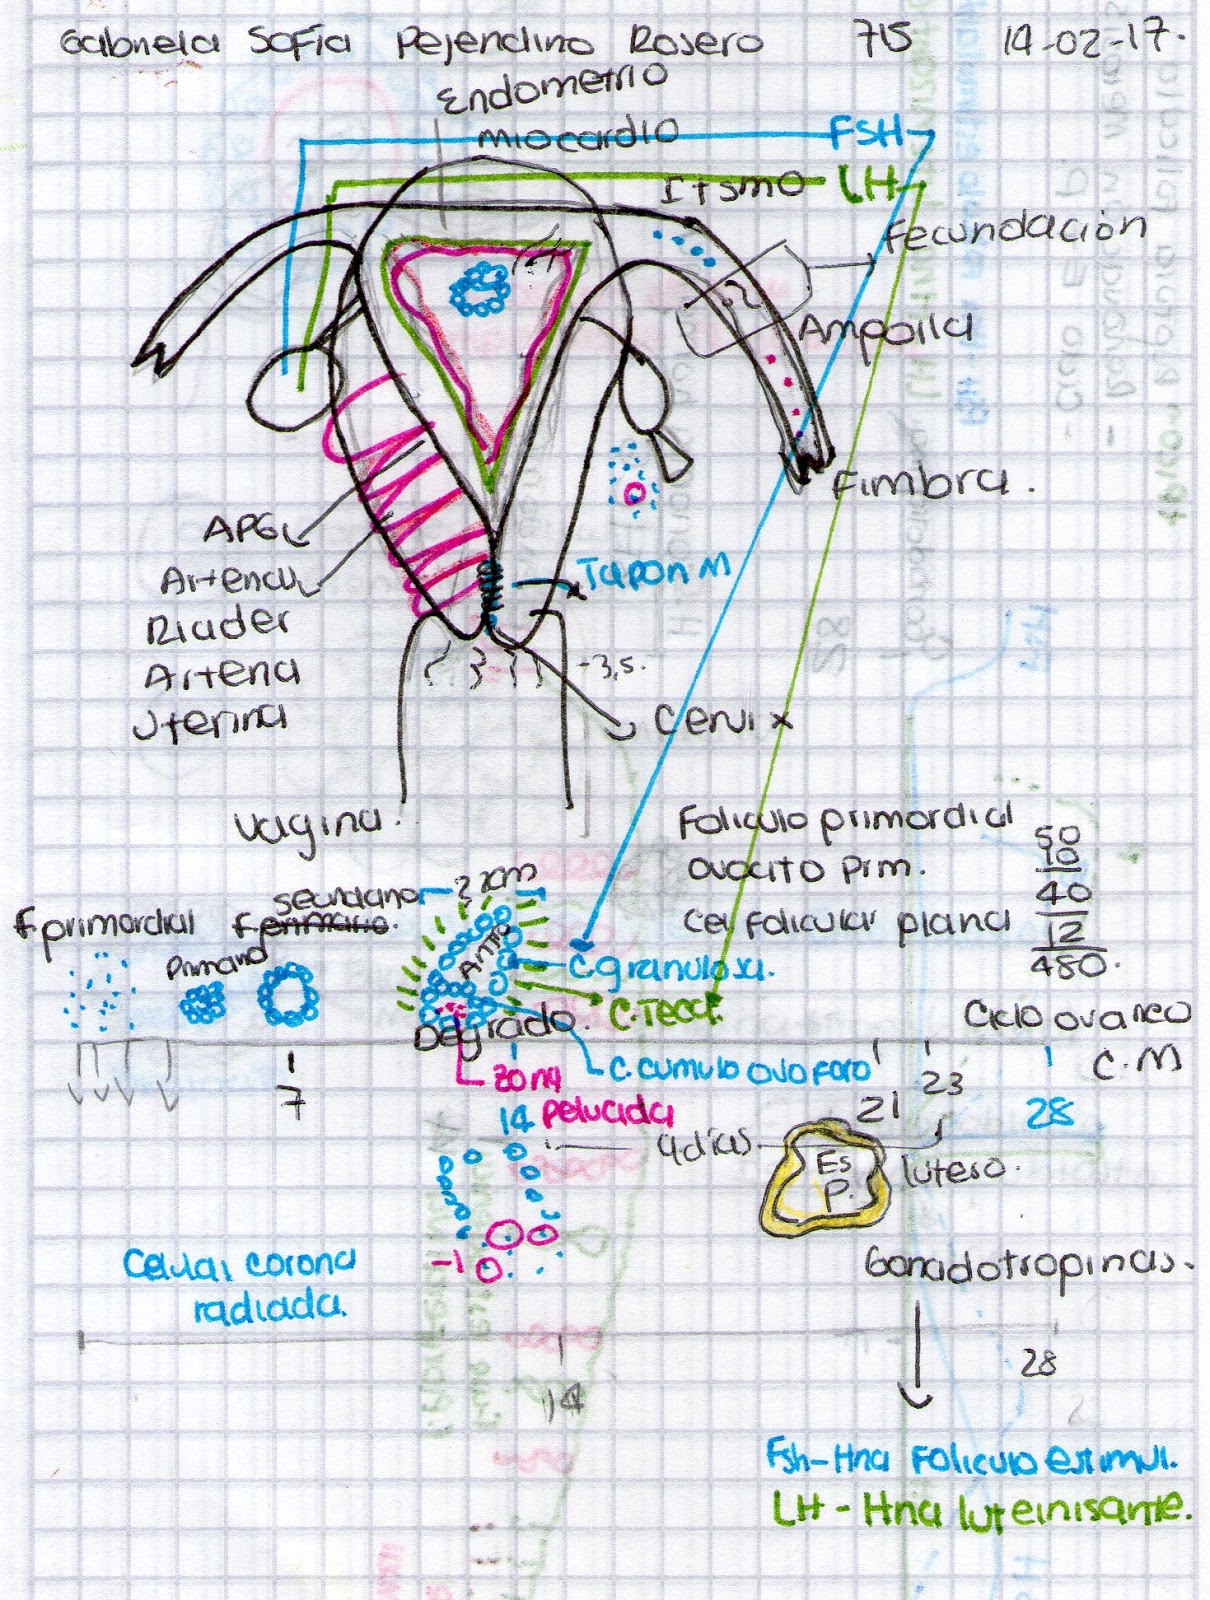 Gabriela Sofia Pejendino Rosero 715 14-02-17.
Endometrio
miocardio FSH
Itsmo LH
Fecundación
Ampolla
Fimbra.
Tapon M
-3,5.
Cervix
Arteria
Uterina
Vagina.
Foliculo primordial
ovocito prim.
Cel folicular plana
50
10
40
12
480.
secundario 2 cm
F primordial F. primario.
primario
Antro
C granulosa.
C. Teca.
Degrado.
C. cumulo ovoforo
Zona
pelucida
Ciclo ovarico
C. M
7
14
21
23
28
9 días
Es
P.
luteo.
-1
Celulas corona
radiada.
Gonadotropinas.
14
28
Fsh-Hna Foliculo estimul.
LH - Hna luteinisante.